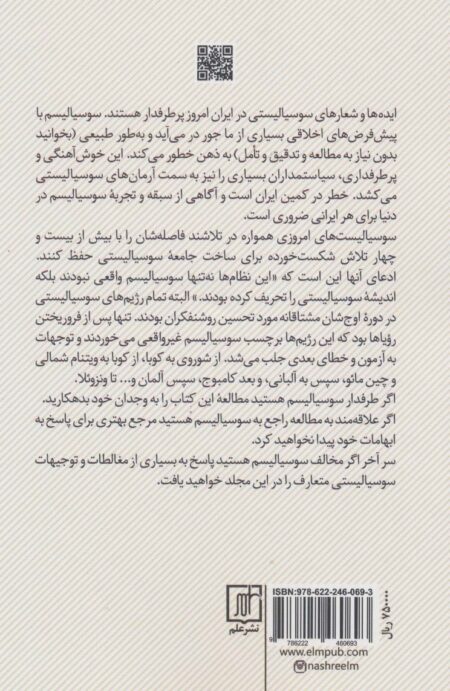 ایده‌ها و شعارهای سوسیالیستی در ایران امروز پرطرفدار هستند. سوسیالیسم با
پیش‌فرض‌های اخلاقی بسیاری از ما جور در می‌آید و به‌طور طبیعی (بخوانید
بدون نیاز به مطالعه و تدقیق و تأمل) به ذهن خطور می‌کند. این خوش‌آهنگی و
پرطرفداری، سیاستمداران بسیاری را نیز به سمت آرمان‌های سوسیالیستی
می‌کشد. خطر در کمین ایران است و آگاهی از سبقه و تجربهٔ سوسیالیسم در
دنیا برای هر ایرانی ضروری است.
سوسیالیست‌های امروزی همواره در تلاشند فاصله‌شان را با بیش از بیست و
چهار تلاش شکست‌خورده برای ساخت جامعهٔ سوسیالیستی حفظ کنند.
ادعای آنها این است که «این نظام‌ها نه‌تنها سوسیالیسم واقعی نبودند بلکه
اندیشهٔ سوسیالیستی را تحریف کرده بودند.» البته تمام رژیم‌های سوسیالیستی
در دورهٔ اوج‌شان مشتاقانه مورد تحسین روشنفکران بودند. تنها پس از فروریختن
رؤیاها بود که این رژیم‌ها برچسب سوسیالیسم غیرواقعی می‌خوردند و توجهات
به آزمون و خطای بعدی جلب می‌شد. از شوروی به کوبا، از کوبا به ویتنام شمالی
و چین مائو، سپس به آلبانی، و بعد کامبوج، سپس آلمان و... تا ونزوئلا.
اگر طرفدار سوسیالیسم هستید مطالعهٔ این کتاب را به وجدان خود بدهکارید.
اگر علاقه‌مند به مطالعه راجع به سوسیالیسم هستید مرجع بهتری برای پاسخ به
ابهامات خود پیدا نخواهید کرد.
سر آخر اگر مخالف سوسیالیسم هستید پاسخ به بسیاری از مغالطات و توجیهات
سوسیالیستی متعارف را در این مجلد خواهید یافت.
ISBN: 978-622-246-069-3
9 786222 460693
۷۵۰۰۰۰ ریال
نشر علم
www.elmpub.com
nashreelm